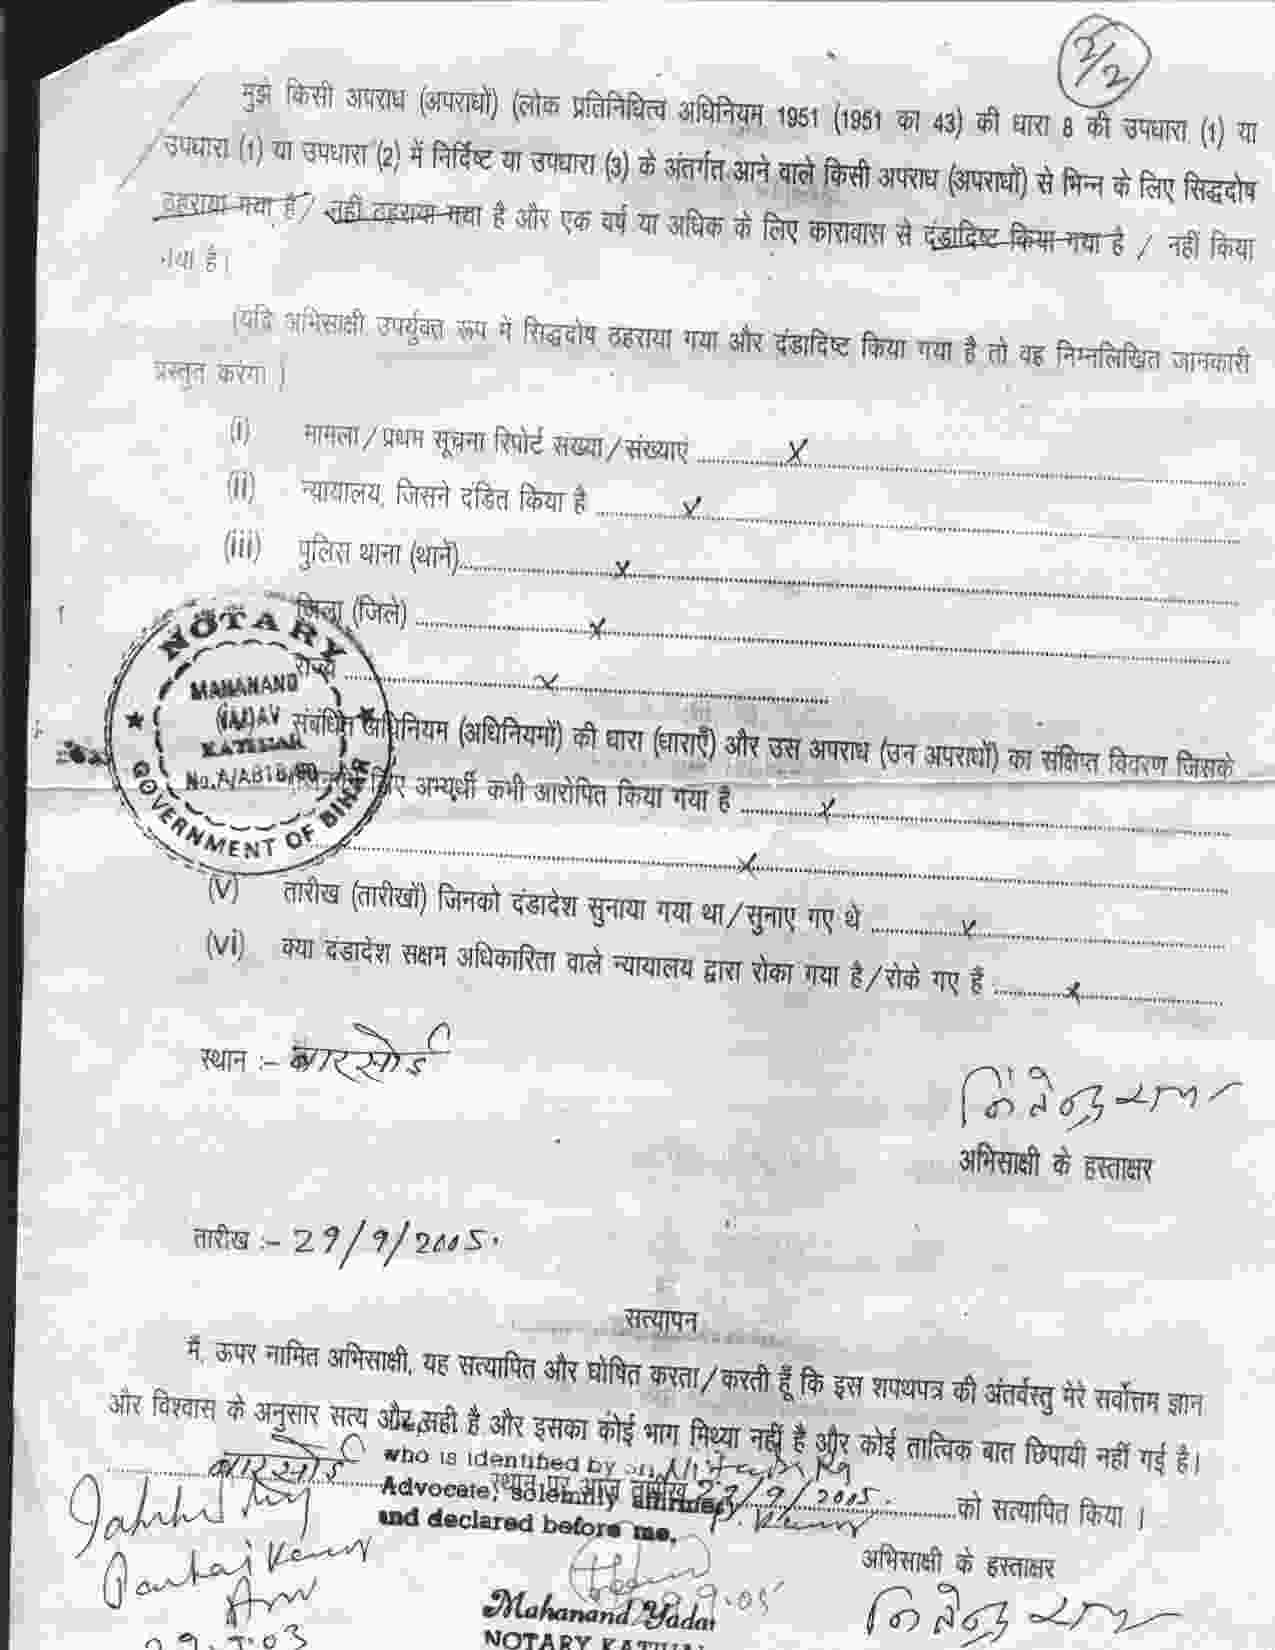 2/2
मुझे किसी अपराध (अपराधों) (लोक प्रतिनिधित्व अधिनियम 1951 (1951 का 43) की धारा 8 की उपधारा (1) या
उपधारा (1) या उपधारा (2) में निर्दिष्ट या उपधारा (3) के अंतर्गत आने वाले किसी अपराध (अपराधों) से भिन्न के लिए सिद्धदोष
ठहराया गया है / नहीं ठहराया गया है और एक वर्ष या अधिक के लिए कारावास से दंडादिष्ट किया गया है / नहीं किया
गया है।
(यदि अभिसाक्षी उपर्युक्त रूप में सिद्धदोष ठहराया गया और दंडादिष्ट किया गया है तो वह निम्नलिखित जानकारी
प्रस्तुत करेगा)
(i) मामला/प्रथम सूचना रिपोर्ट संख्या/संख्याएं x
(ii) न्यायालय, जिसने दंडित किया है x
(iii) पुलिस थाना (थाने) x
जिला (जिले) x
राज्य x
संबंधित अधिनियम (अधिनियमों) की धारा (धाराएँ) और उस अपराध (उन अपराधों) का संक्षिप्त विवरण जिसके
लिए अभ्यर्थी कभी आरोपित किया गया है x
x
NOTARY
MAHANAND
YADAV
KATIHAR
GOVERNMENT OF BIHAR
(v) तारीख (तारीखों) जिनको दंडादेश सुनाया गया था/सुनाए गए थे x
(vi) क्या दंडादेश सक्षम अधिकारिता वाले न्यायालय द्वारा रोका गया है/रोके गए हैं x
स्थान :– बारसोई
अभिसाक्षी के हस्ताक्षर
तारीख :– 29/9/2005.
सत्यापन
मैं, ऊपर नामित अभिसाक्षी, यह सत्यापित और घोषित करता/करती हूँ कि इस शपथपत्र की अंतर्वस्तु मेरे सर्वोत्तम ज्ञान
और विश्वास के अनुसार सत्य और सही है और इसका कोई भाग मिथ्या नहीं है और कोई तात्विक बात छिपायी नहीं गई है।
who is identified by
बारसोई स्थान पर आज तारीख 29/9/2005. को सत्यापित किया।
Advocate, solemnly affirmed
and declared before me.
Pankaj Kumar
अभिसाक्षी के हस्ताक्षर
Mahanand Yadav
NOTARY KATIHAR